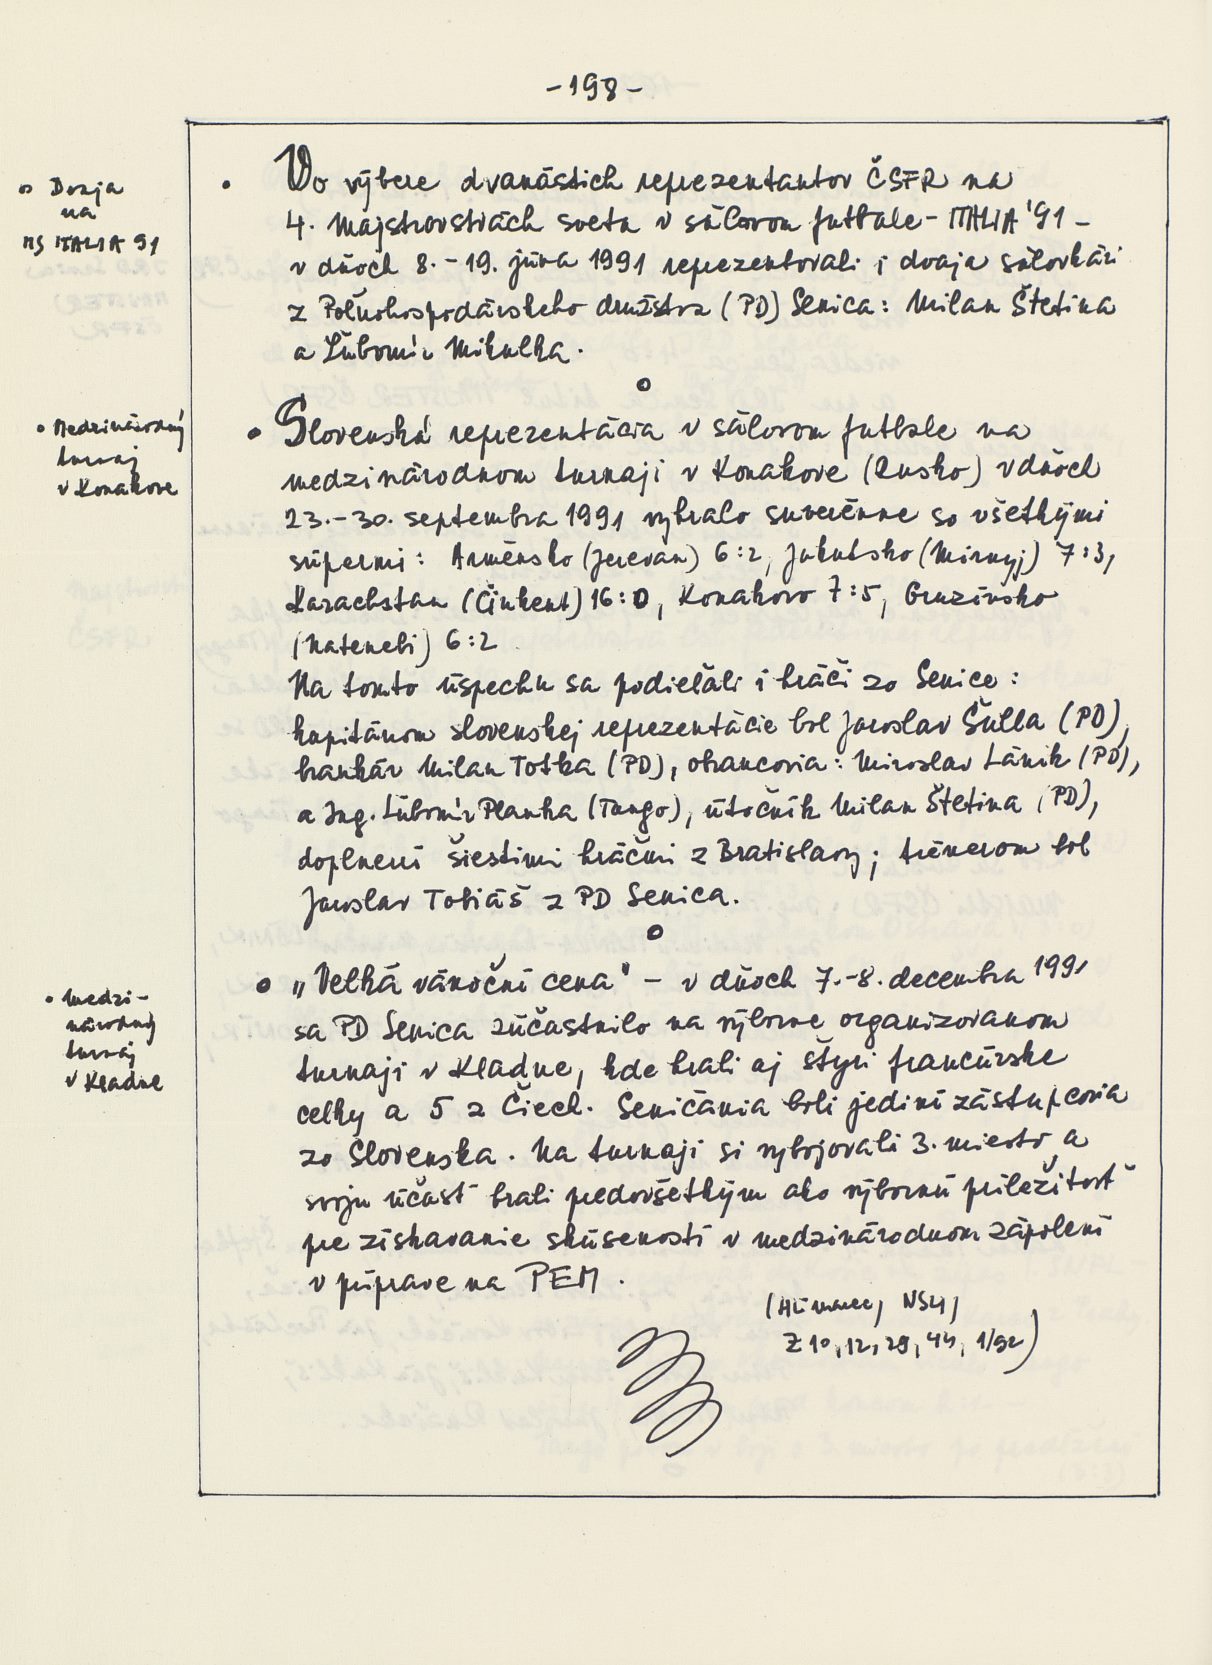 -198-
Dvaja
na
MS ITALIA 91
• Vo výbere dvanástich reprezentantov ČSFR na
4. Majstrovstvách sveta v sálovom futbale - ITALIA '91 -
v dňoch 8. - 19. júna 1991 reprezentovali i dvaja sálovkári
z Poľnohospodárskeho družstva (PD) Senica: Milan Štetina
a Ľubomír Mikulka.
• Medzinárodný
turnaj
v Konakove
• Slovenská reprezentácia v sálovom futbale na
medzinárodnom turnaji v Konakove (Rusko) v dňoch
23.-30. septembra 1991 vyhralo suverénne so všetkými
súpermi: Arménsko (Jerevan) 6:2, Jakutsko (Mirnyj) 7:3,
Kazachstan (Činkent) 16:0, Konakovo 7:5, Gruzínsko
(Natenebi) 6:2
Na tomto úspechu sa podieľali i hráči zo Senice:
kapitánom slovenskej reprezentácie bol Jaroslav Šulla (PD),
brankár Milan Totka (PD), obrancovia: Miroslav Lánik (PD),
a Ing. Ľubomír Planka (Tango), útočník Milan Štetina (PD),
doplnení šiestimi hráčmi z Bratislavy; trénerom bol
Jaroslav Tobiáš z PD Senica.
• Medzi-
národný
turnaj
v Kladne
• "Velká vánoční cena" - v dňoch 7.-8. decembra 1991
sa PD Senica zúčastnilo na výborne organizovanom
turnaji v Kladne, kde hrali aj štyri francúzske
celky a 5 z Čiech. Seničania boli jediní zástupcovia
zo Slovenska. Na turnaji si vybojovali 3. miesto a
svoju účasť brali predovšetkým ako výbornú príležitosť
pre získavanie skúseností v medzinárodnom zápolení
v príprave na PEM.
NSH,
Z 10, 12, 29, 44, 1/92)